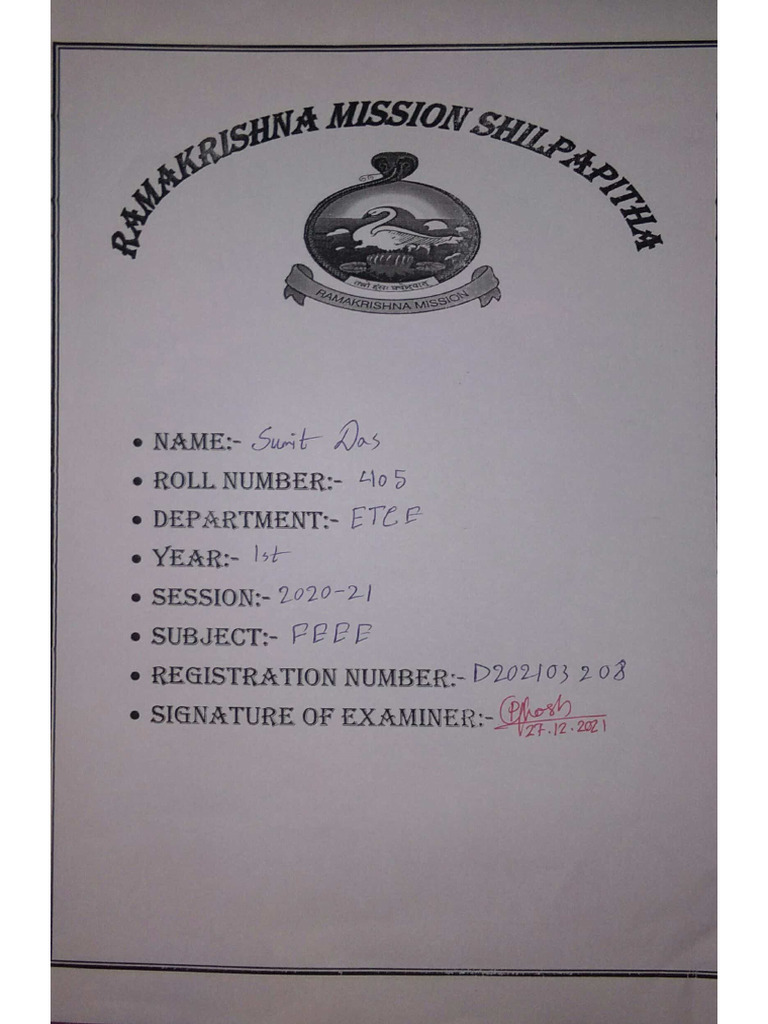 RAMAKRISHNA MISSION SHILPAPITHA
RAMAKRISHNA MISSION
• NAME:- Sumit Das
• ROLL NUMBER:- 405
• DEPARTMENT:- ETCE
• YEAR:- 1st
• SESSION:- 2020-21
• SUBJECT:- FEEE
• REGISTRATION NUMBER:- D202103208
• SIGNATURE OF EXAMINER:- PGhosh
27.12.2021